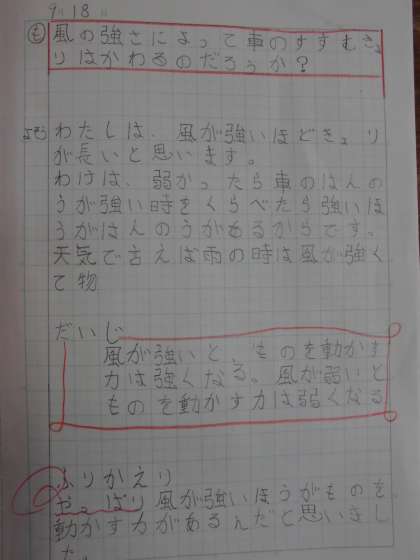 9/18
も 風の強さによって車のすすむきょ
りはかわるのだろうか?
よそう わたしは、風が強いほどきょり
が長いと思います。
わけは、弱かったら車のはんの
うが強い時をくらべたら強いほ
うがはんのうがあるからです。
天気で言えば雨の時は風が強く
て物
だいじ
風が強いと、ものを動かす
力は強くなる。風が弱いと
ものを動かす力は弱くなる
ふりかえり
やっぱり風が強いほうがものを
動かす力があるんだと思いまし
た。